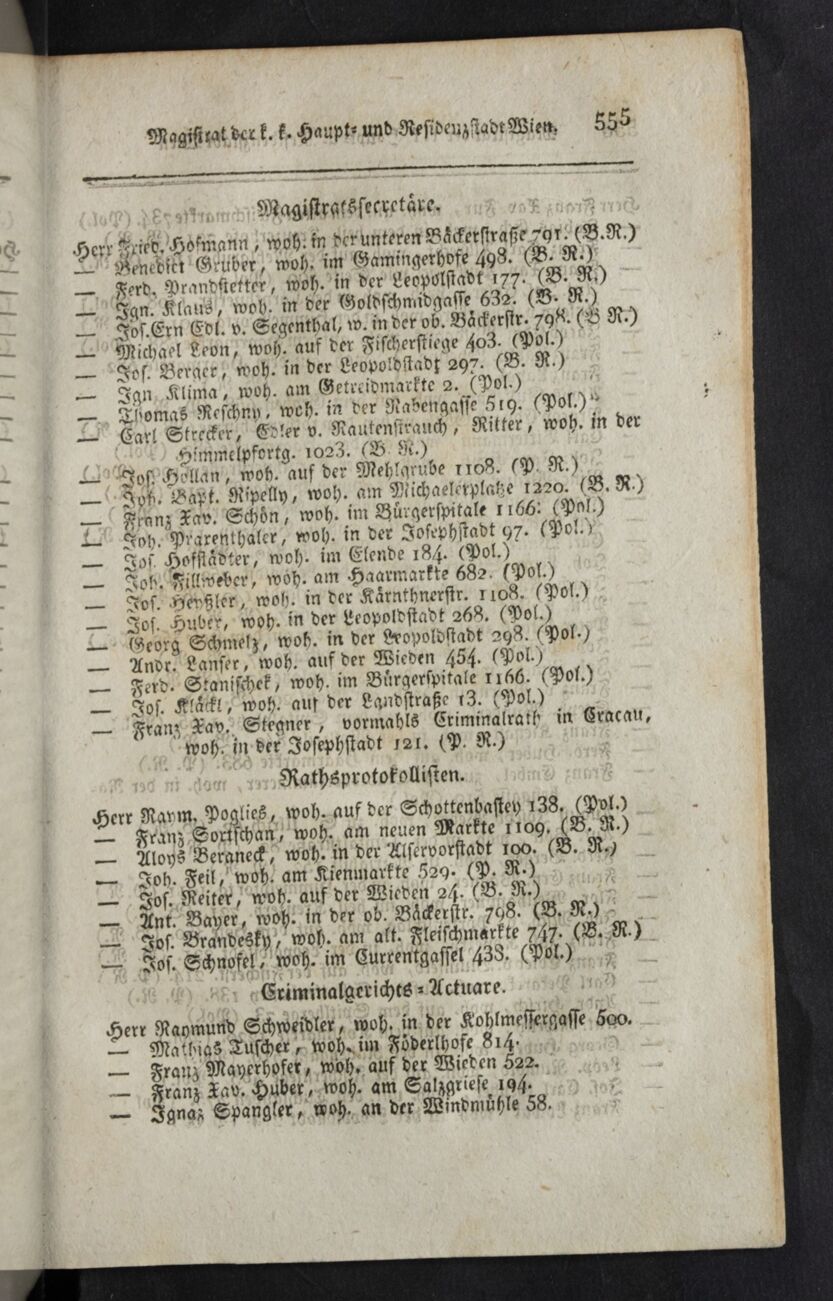 Magistrat der k. k. Haupt- und Residenzstadt Wien. 555
Magistratssecretäre.
Herr Fried. Hofmann, woh. in der unteren Bäckerstraße 791. (B.R.)
— Benedict Gruber, woh. im Gamingerhofe 498. (B. R.)
— Ferd. Prandstetter, woh. in der Leopolstadt 177. (B. R.)
— Ign. Klaus, woh. in der Goldschmidgasse 632. (B. R.)
— Jos. Ern Edl. v. Segenthal, w. in der ob. Bäckerstr. 798. (B R.)
— Michael Leon, woh. auf der Fischerstiege 403. (Pol.)
— Jos. Berger, woh. in der Leopoldstadt 297. (B. R.)
— Ign. Klima, woh. am Getreidmarkte 2. (Pol.)
— Thomas Reschny, woh. in der Rabengasse 519. (Pol.)
— Carl Strecker, Edler v. Rautenstrauch, Ritter, woh. in der
Himmelpfortg. 1023. (B. R.)
— Jos. Hollan, woh. auf der Mehlgrube 1108. (P. R.)
— Joh. Bapt. Ripelly, woh. am Michaelerplatze 1220. (B. R.)
— Franz Xav. Schön, woh. im Bürgerspitale 1166. (Pol.)
— Joh. Prarenthaler, woh. in der Josephstadt 97. (Pol.)
— Jos. Hofstädter, woh. im Elende 184. (Pol.)
— Joh. Fillweber, woh. am Haarmarkte 682. (Pol.)
— Jos. Heyßler, woh. in der Kärnthnerstr. 1108. (Pol.)
— Jos. Huber, woh. in der Leopoldstadt 268. (Pol.)
— Georg Schmelz, woh. in der Leopoldstadt 298. (Pol.)
— Andr. Lanser, woh. auf der Wieden 454. (Pol.)
— Ferd. Stanischek, woh. im Bürgerspitale 1166. (Pol.)
— Jos. Kläckl, woh. auf der Landstraße 13. (Pol.)
— Franz Xav. Stegner, vormahls Criminalrath in Cracau,
woh. in der Josephstadt 121. (P. R.)
Rathsprotokollisten.
Herr Raym. Poglies, woh. auf der Schottenbastey 138. (Pol.)
— Franz Sortschan, woh. am neuen Markte 1109. (B. R.)
— Aloys Beraneck, woh. in der Alservorstadt 100. (B. R.)
— Joh. Feil, woh. am Kienmarkte 529. (P. R.)
— Jos. Reiter, woh. auf der Wieden 24. (B. R.)
— Ant. Bayer, woh. in der ob. Bäckerstr. 798. (B. R.)
— Jos. Brandesky, woh. am alt. Fleischmarkte 747. (B. R.)
— Jos. Schnofel, woh. im Currentgassel 438. (Pol.)
Criminalgerichts-Actuare.
Herr Raymund Schweidler, woh. in der Kohlmessergasse 500.
— Mathias Tuscher, woh. im Föderlhofe 814.
— Franz Mayerhofer, woh. auf der Wieden 522.
— Franz Xav. Huber, woh. am Salzgriese 194.
— Ignaz Spangler, woh. an der Windmühle 58.